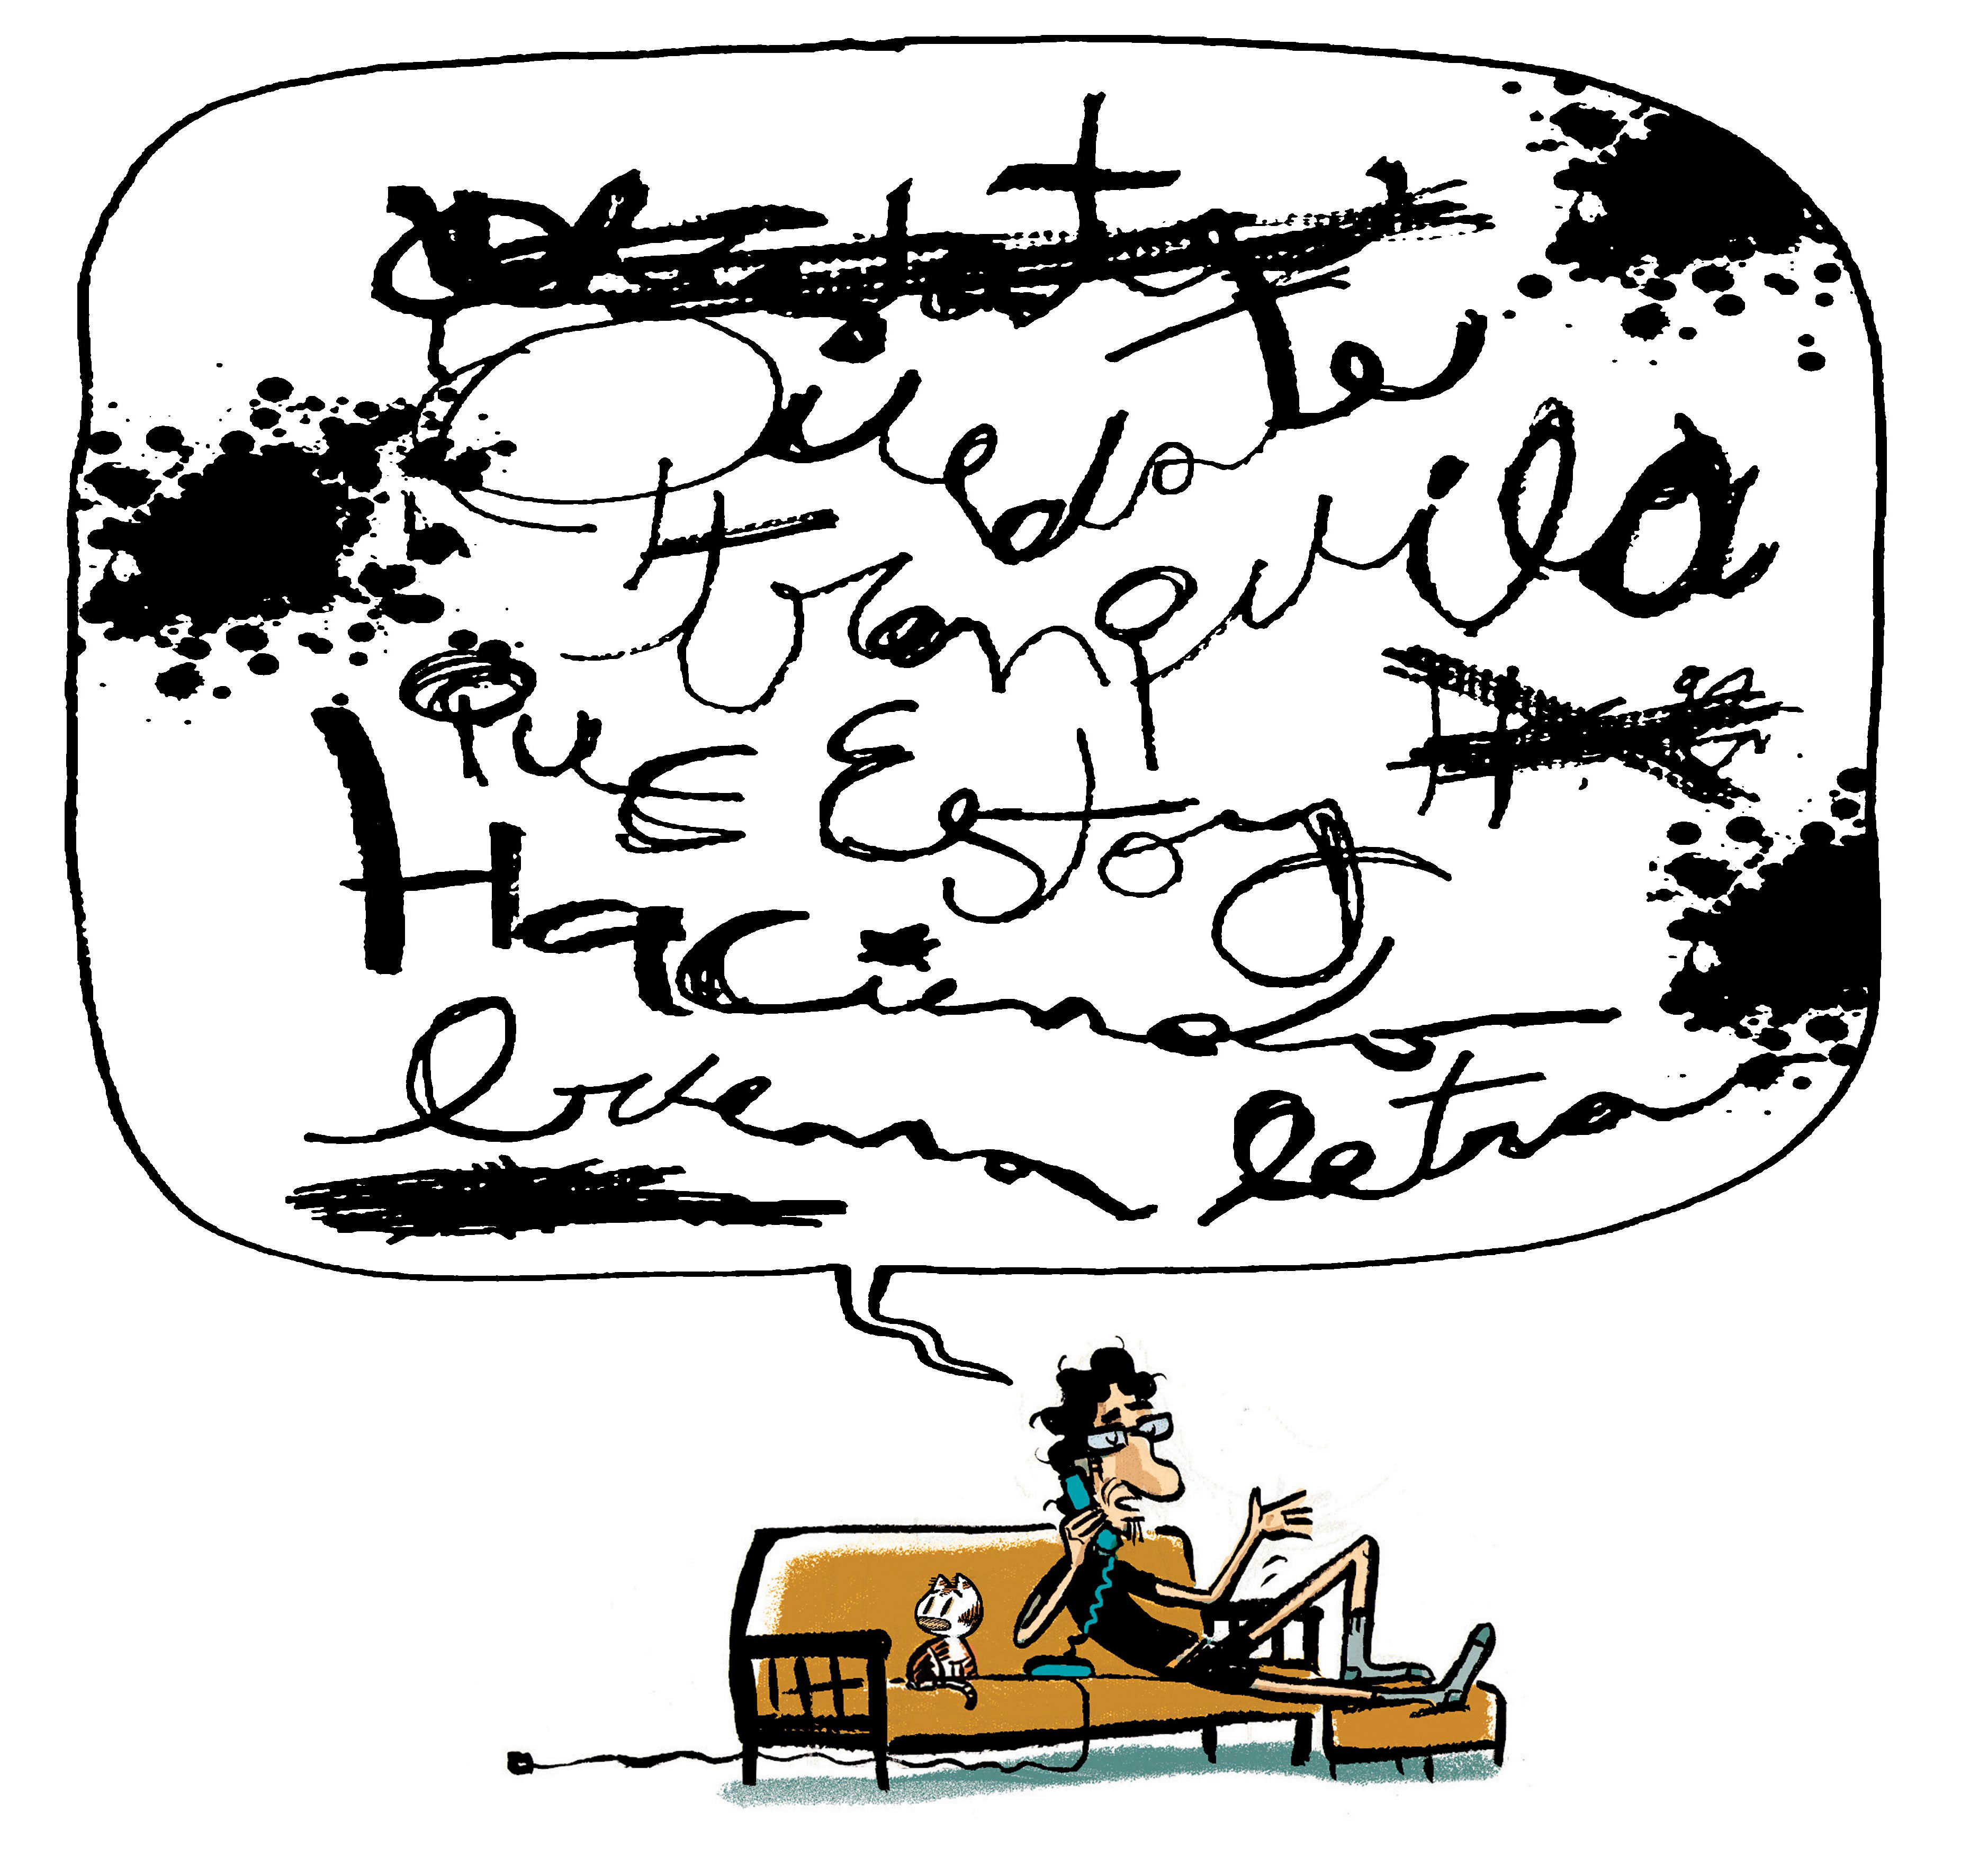 Quedate
tranquila
que Estoy
Haciendo
buena letra